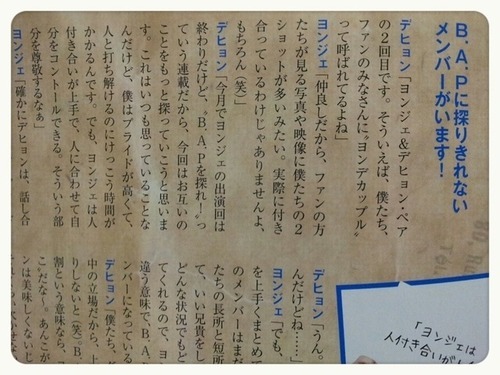 B.A.Pに探りきれない
メンバーがいます！
デヒョン「ヨンジェ&デヒョン・ペア
の2回目です。そういえば、僕たち、
ファンのみなさんに〝ヨンデカップル〟
って呼ばれてるよね」
ヨンジェ「仲良しだから、ファンの方
たちが見る写真や映像に僕たちの2
ショットが多いみたい。実際に付き
合っているわけじゃありませんよ、
もちろん（笑）」
デヒョン「今月でヨンジェの出演回は
終わりだけど、〝B.A.Pを探れ！〟っ
ていう連載だから、今回はお互いの
ことをもっと探っていこうと思いま
す。これはいつも思っていることな
んだけど、僕はプライドが高くて、
人と打ち解けるのにけっこう時間が
かかるんです。でも、ヨンジェは人
付き合いが上手で、人に合わせて自
分をコントロールできる。そういう部
分を尊敬するなぁ」
ヨンジェ「確かにデヒョンは、話し合
デヒョン「うん。
んだけどね……」
ヨンジェ「でも、
を上手くまとめて
のメンバーはまだ
たちの長所と短所
て、いい兄貴をし
どんな状況でもど
てくれるので、ヨ
違う意味で、B.A
ンバーになっている
デヒョン「僕たち、グ
中の立場だから、上
りしないと（笑）。B
割という意味なら、「
こ〟だな〜。あんこが
ンは美味しくないじ
「ヨンジェは
人付き合いがい